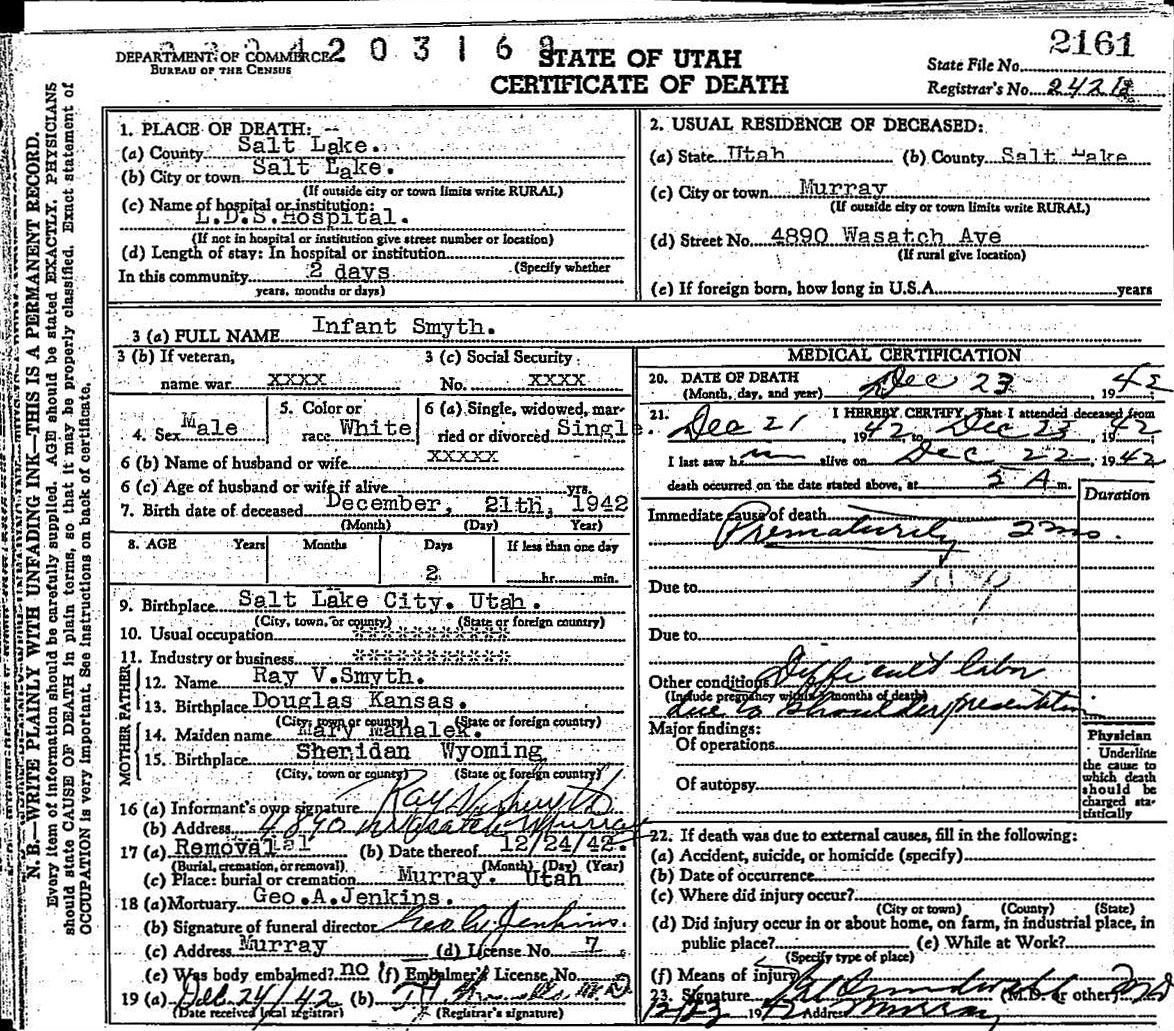 2161
DEPARTMENT OF COMMERCE
BUREAU OF THE CENSUS
203169
STATE OF UTAH
CERTIFICATE OF DEATH
State File No.
Registrar's No. 2421
N. B.—WRITE PLAINLY WITH UNFADING INK—THIS IS A PERMANENT RECORD.
Every item of information should be carefully supplied. AGE should be stated EXACTLY. PHYSICIANS
should state CAUSE OF DEATH in plain terms, so that it may be properly classified. Exact statement of
OCCUPATION is very important. See instructions on back of certificate.
1. PLACE OF DEATH:
(a) County Salt Lake.
(b) City or town Salt Lake.
(If outside city or town limits write RURAL)
(c) Name of hospital or institution:
L.D.S.Hospital.
(If not in hospital or institution give street number or location)
(d) Length of stay: In hospital or institution
(Specify whether
In this community 2 days
years, months or days)
2. USUAL RESIDENCE OF DECEASED:
(a) State Utah (b) County Salt Lake
(c) City or town Murray
(If outside city or town limits write RURAL)
(d) Street No. 4890 Wasatch Ave
(If rural give location)
(e) If foreign born, how long in U.S.A. years
3 (a) FULL NAME Infant Smyth.
3 (b) If veteran, 3 (c) Social Security
name war XXXX No. XXXX
4. Sex Male 5. Color or race White 6 (a) Single, widowed, married or divorced Single.
6 (b) Name of husband or wife XXXXX
6 (c) Age of husband or wife if alive yrs.
7. Birth date of deceased December, 21th, 1942
(Month) (Day) Year)
8. AGE Years Months Days If less than one day
2 hr. min.
9. Birthplace Salt Lake City. Utah.
(City, town, or county) (State or foreign country)
10. Usual occupation **********
11. Industry or business **********
FATHER
12. Name Ray V.Smyth.
13. Birthplace Douglas Kansas.
(City, town or county) (State or foreign country)
MOTHER
14. Maiden name Mary Mahalek.
15. Birthplace Sheridan Wyoming
(City, town or county) (State or foreign country)
16 (a) Informant's own signature Ray V. Smyth
(b) Address 4890 Wasatch Murray
17 (a) Removal (b) Date thereof 12/24/42.
(Burial, cremation, or removal) (Month) (Day) (Year)
(c) Place: burial or cremation Murray. Utah
18 (a) Mortuary Geo.A.Jenkins.
(b) Signature of funeral director Geo A Jenkins.
(c) Address Murray (d) License No. 7
(e) Was body embalmed? no (f) Embalmer's License No.
19 (a) Dec. 24/42 (b)
(Date received local registrar) (Registrar's signature)
MEDICAL CERTIFICATION
20. DATE OF DEATH Dec 23 1942
(Month, day, and year)
21. I HEREBY CERTIFY, That I attended deceased from
Dec 21, 1942 to Dec 23, 1942
I last saw him alive on Dec 22, 1942
death occurred on the date stated above, at 5 A m.
Duration
Immediate cause of death
Prematurity 2 mo.
Due to
Due to
Other conditions Difficult labor
(Include pregnancy within 3 months of death)
due to shoulder presentation
Major findings:
Of operations
Of autopsy
Physician
Underline
the cause to
which death
should be
charged sta-
tistically
22. If death was due to external causes, fill in the following:
(a) Accident, suicide, or homicide (specify)
(b) Date of occurrence
(c) Where did injury occur?
(City or town) (County) (State)
(d) Did injury occur in or about home, on farm, in industrial place, in
public place? (e) While at Work?
(Specify type of place)
(f) Means of injury
23. Signature (M.D. or other) MD
12/23 1942 Address Murray